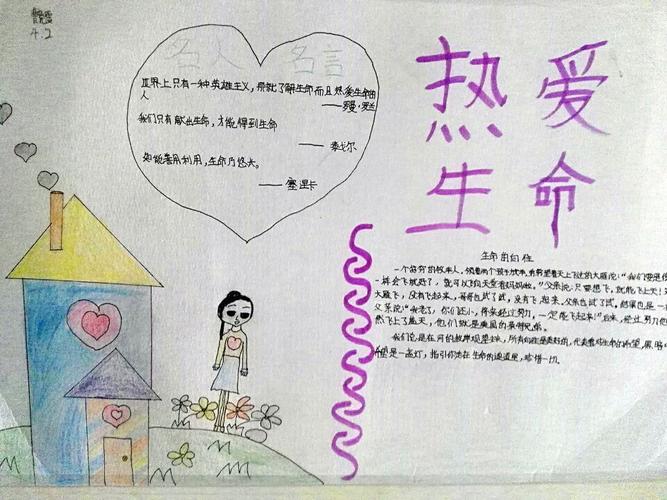 4.2
名人 名言
世界上只有一种英雄主义，那就是了解生命而且热爱生命的
人
——罗曼·罗兰
我们只有献出生命，才能得到生命
——泰戈尔
如能善用利用，生命乃悠长。
——塞涅卡
热爱
生命
生命的向往
一个贫穷的牧羊人，领着两个孩子放羊，
一样会飞就好了，就可以飞向天堂看妈妈啦。”父亲说：只要想飞，就能飞上天！
大雁飞，没有飞起来，哥哥也试了试，没有飞起来，父亲也试了试，结果也是一
父亲说：“我老了，你们还小，将来经过努力，一定能飞起来！”后来，经过努力他
然飞上了蓝天，他们就是美国的莱特兄弟。
我们总是在河的彼岸观望未来，所有向往是美好的，代表着对生命的希望，
是一盏灯，指引你走在生命的道道尾，珍惜一切。